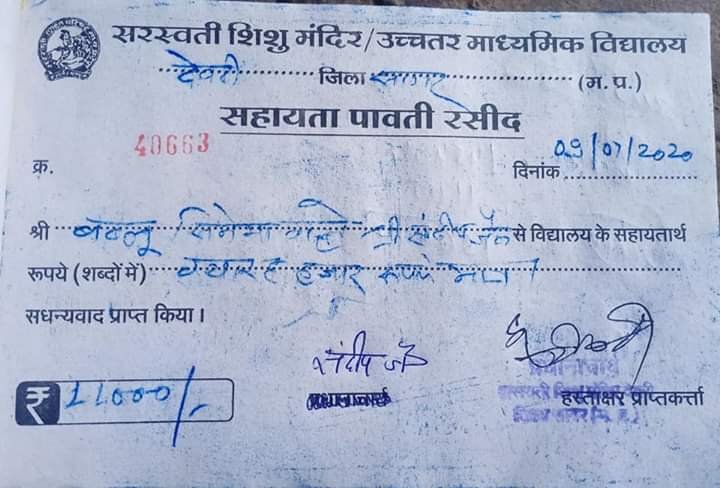 सरस्वती शिशु मंदिर/उच्चतर माध्यमिक विद्यालय
देवरी जिला सागर (म. प्र.)
सहायता पावती रसीद
40663
क्र. दिनांक 09/07/2020
श्री बबलू सिनेमा वाले श्री संदीप जैन से विद्यालय के सहायतार्थ
रूपये (शब्दों में) ग्यारह हजार रूपये मात्र।
सधन्यवाद प्राप्त किया।
संदीप जैन
प्रधानाचार्य
₹ 11000/-
हस्ताक्षर प्राप्तकर्त्ता